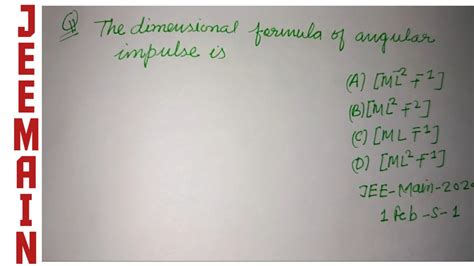 JEEMAIN
Q The dimensional formula of angular
impulse is
(A) [ML⁻² T⁻¹]
(B) [ML² T⁻²]
(C) [ML T⁻¹]
(D) [ML² T⁻¹]
JEE-Main-202
1 Feb-S-1